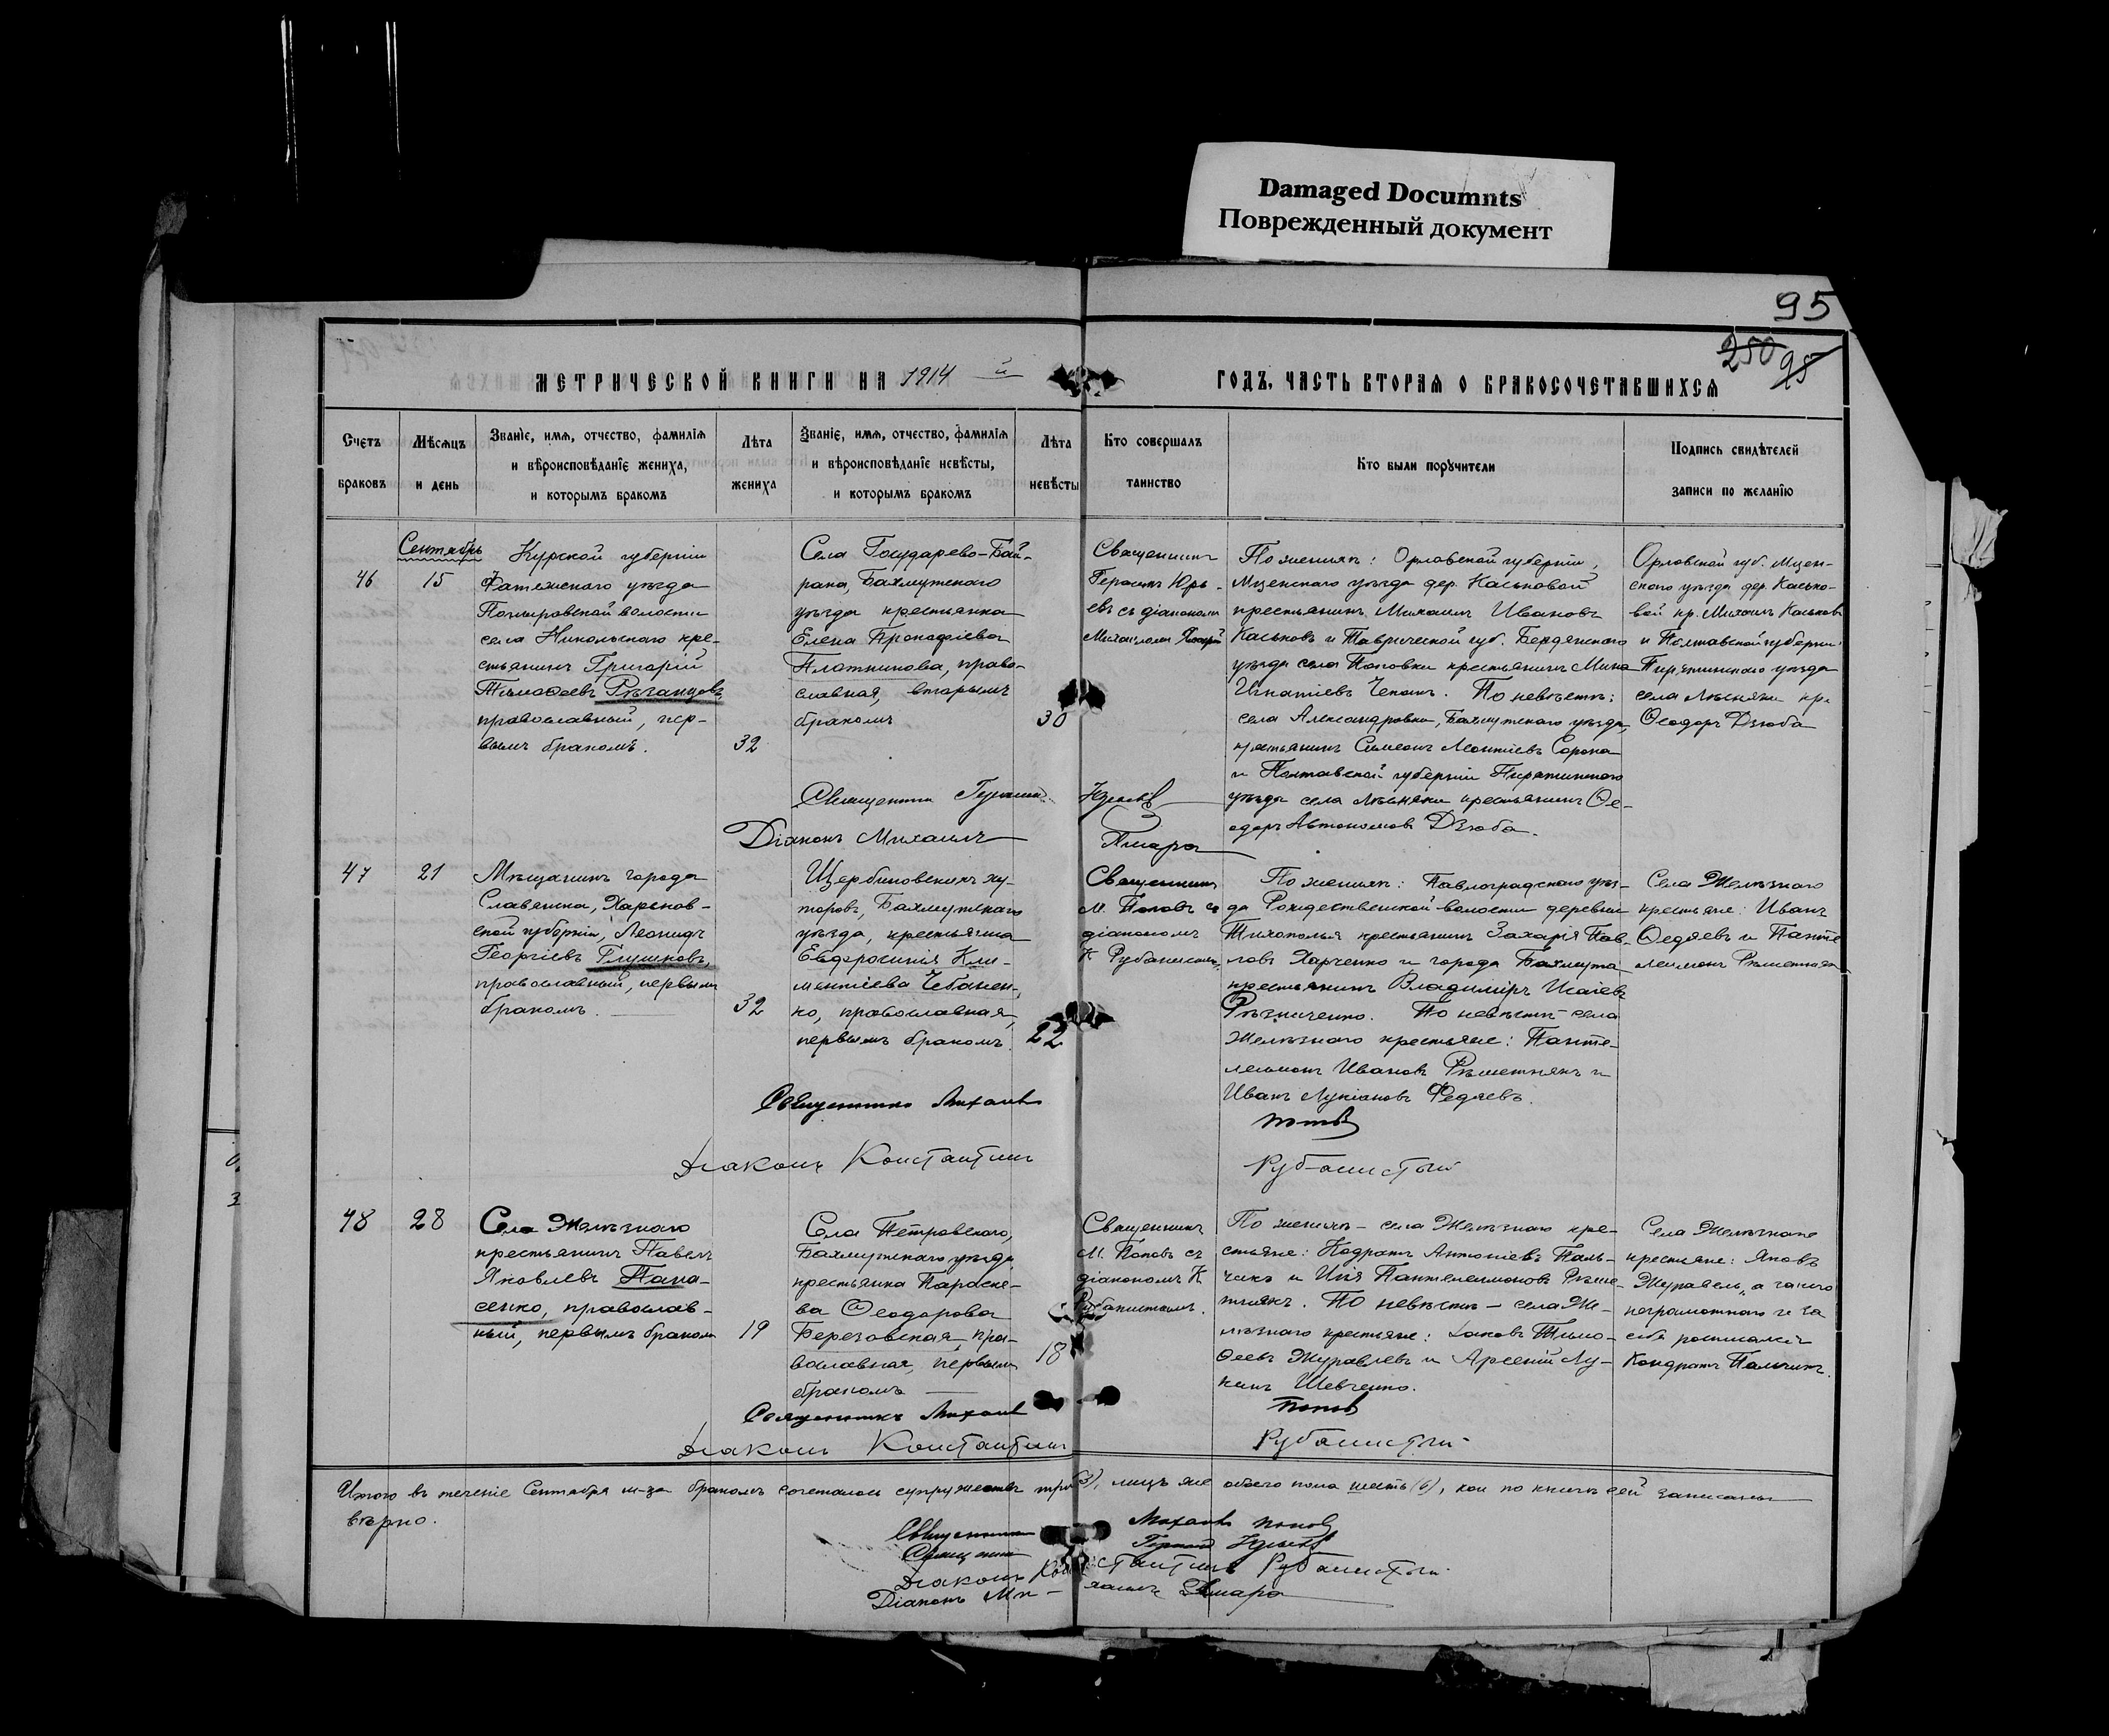 Damaged Documnts
Поврежденный документ
95
250 95
МЕТРИЧЕСКОЙ КНИГИ НА 1914 й
ГОДЪ, ЧАСТЬ ВТОРАЯ О БРАКОСОЧЕТАВШИХСЯ
Счетъ
браковъ
Мѣсяцъ
и день
Званіе, имя, отчество, фамилія
и вѣроисповѣданіе жениха,
и которымъ бракомъ
Лѣта
жениха
Званіе, имя, отчество, фамилія
и вѣроисповѣданіе невѣсты,
и которымъ бракомъ
Лѣта
невѣсты
Кто совершалъ
таинство
Кто были поручители
Подпись свидѣтелей
записи по желанію
46
Сентябрь
15
Курской губерніи
Фатежскаго уѣзда
волости
села Никольскаго кре-
стьянинъ Григорій
Тимоѳеевъ Рѣзанцовъ,
православный, пер-
вымъ бракомъ.
32
Села Государево-Бай-
рака, Бахмутскаго
уѣзда крестьянка
Елена Прокофіева
Плотникова, право-
славная, вторымъ
бракомъ
30
Священникъ
Герасимъ Юрь-
евъ съ діакономъ
Михаиломъ
По женихѣ: Орловской губерніи,
Мценскаго уѣзда дер. Каськовой
крестьянинъ Михаилъ Ивановъ
Каськовъ и Таврической губ. Бердянскаго
уѣзда села Поповки крестьянинъ Мина
Игнатіевъ. По невѣстѣ:
села Александровки, Бахмутскаго уѣзда,
крестьянинъ Симеонъ Леонтіевъ Сорока
и Полтавской губерніи Пирятинскаго
уѣзда села крестьянинъ Ѳе-
одоръ Автономовъ Дзюба.
Орловской губ. Мцен-
скаго уѣзда дер. Касько-
вой кр. Михаилъ Каськовъ
и Полтавской губерніи
Пирятинскаго уѣзда
села кр.
Ѳеодоръ Дзюба
Священникъ Герасимъ Юрьевъ
Діаконъ Михаилъ
47
21
Мѣщанинъ города
Славянска, Харьков-
ской губерніи, Леонидъ
Георгіевъ Глушковъ,
православный, первымъ
бракомъ.
32
Щербиновскихъ ху-
торовъ, Бахмутскаго
уѣзда, крестьянка
Евфросинія Кли-
ментіева Чебанен-
ко, православная,
первымъ бракомъ.
22
Священникъ
М. Поповъ съ
діакономъ
К. Рубанистымъ
По женихѣ: Павлоградскаго уѣз-
да Рождественской волости деревни
Тихополья крестьянинъ Захарія Пав-
ловъ Харченко и города Бахмута
крестьянинъ Владиміръ Исаіевъ
Рѣзниченко. По невѣстѣ села
Желѣзнаго крестьяне: Панте-
леимонъ Ивановъ Рѣшетнякъ и
Иванъ Лукіановъ Федяевъ.
Села Желѣзнаго
крестьяне: Иванъ
Ѳедяевъ и Панте
леимонъ Рѣшетнякъ
Священникъ Михаилъ Поповъ
Діаконъ Константинъ Рубанистый
48
28
Села Желѣзнаго
крестьянинъ Павелъ
Яковлевъ Пана-
сенко, православ-
ный, первымъ бракомъ
19
Села Петровскаго,
Бахмутскаго уѣзда
крестьянка Параске-
ва Ѳеодорова
Березовская, пра-
вославная, первымъ
бракомъ
18
Священникъ
М. Поповъ съ
діакономъ К.
Рубанистымъ.
По женихѣ – села Желѣзнаго кре-
стьяне: Кодратъ Антоніевъ Паль-
чикъ и Илія Пантелеимоновъ Рѣше-
тнякъ. По невѣстѣ – села Же-
лѣзнаго крестьяне: Іаковъ Тимо-
ѳеевъ Журавлевъ и Арсеній Лу-
кинъ Шевченко.
Села Желѣзнаго
крестьяне: Яковъ
Журавель, а за него
неграмотнаго и за
себя росписался
Кондратъ Пальчикъ.
Священникъ Михаилъ Поповъ
Діаконъ Константинъ Рубанистый
Итого въ теченіе Сентября м-ца бракомъ сочеталось супружествъ три (3), лицъ же обоего пола шесть (6), кои по книгѣ сей записаны
вѣрно.
Священникъ Михаилъ Поповъ
Священникъ Герасимъ Юрьевъ
Діаконъ Константинъ Рубанистый
Діаконъ Михаилъ